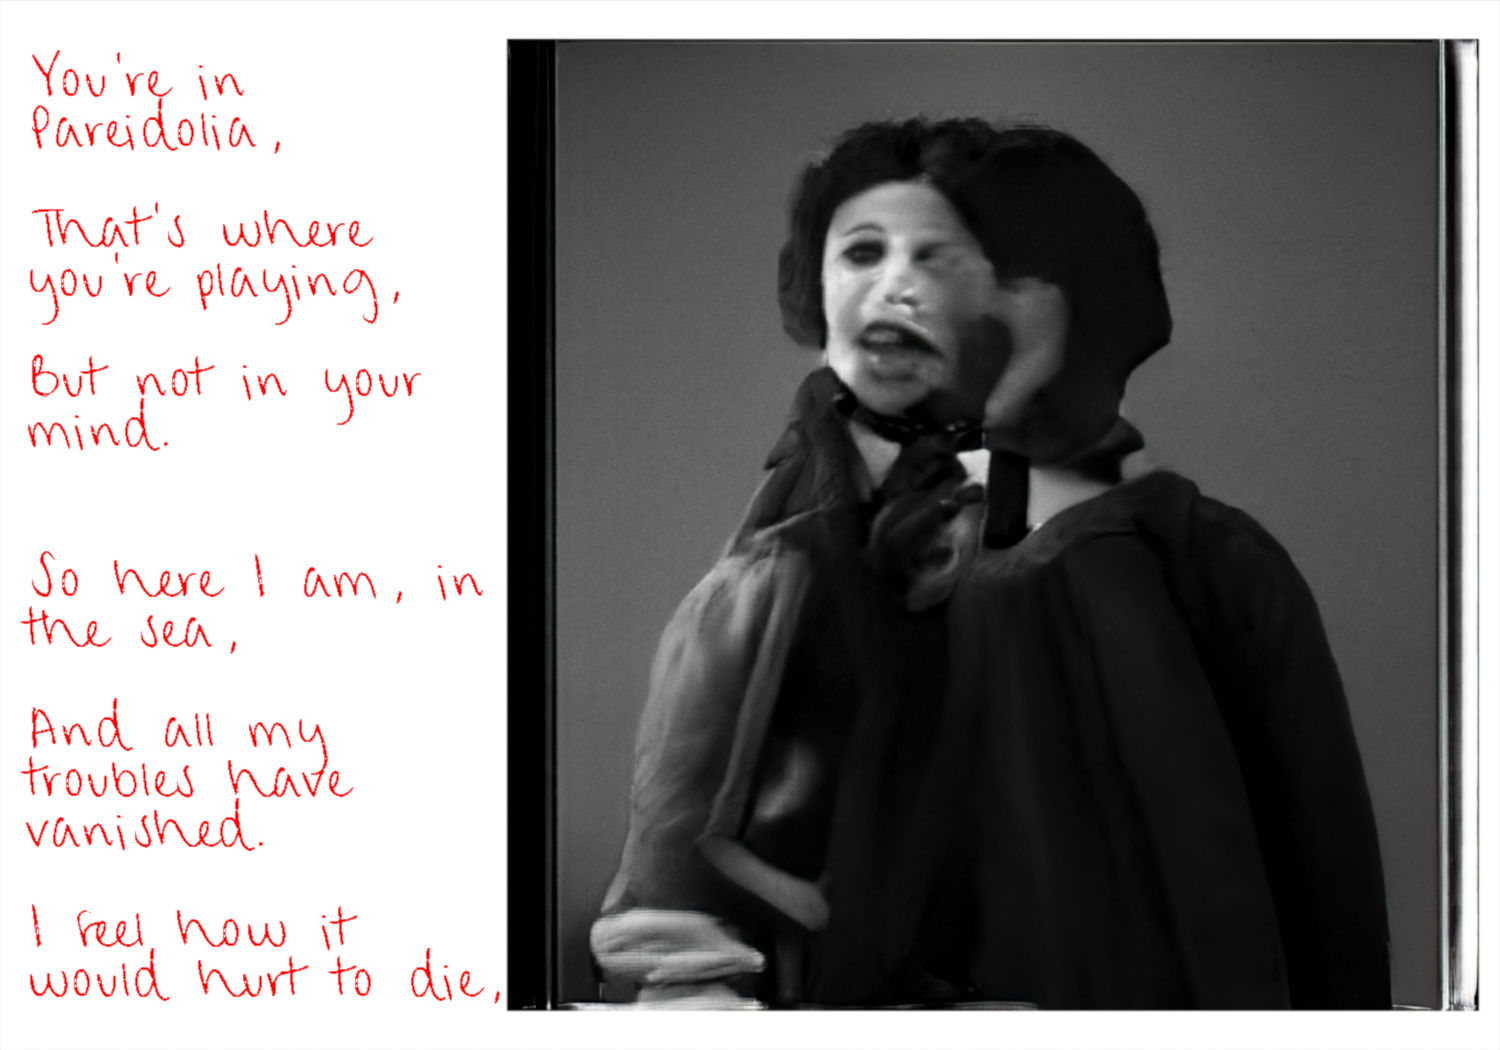 You're in
Pareidolia,
That's where
you're playing,
But not in your
mind.
So here I am, in
the sea,
And all my
troubles have
vanished.
I feel how it
would hurt to die,